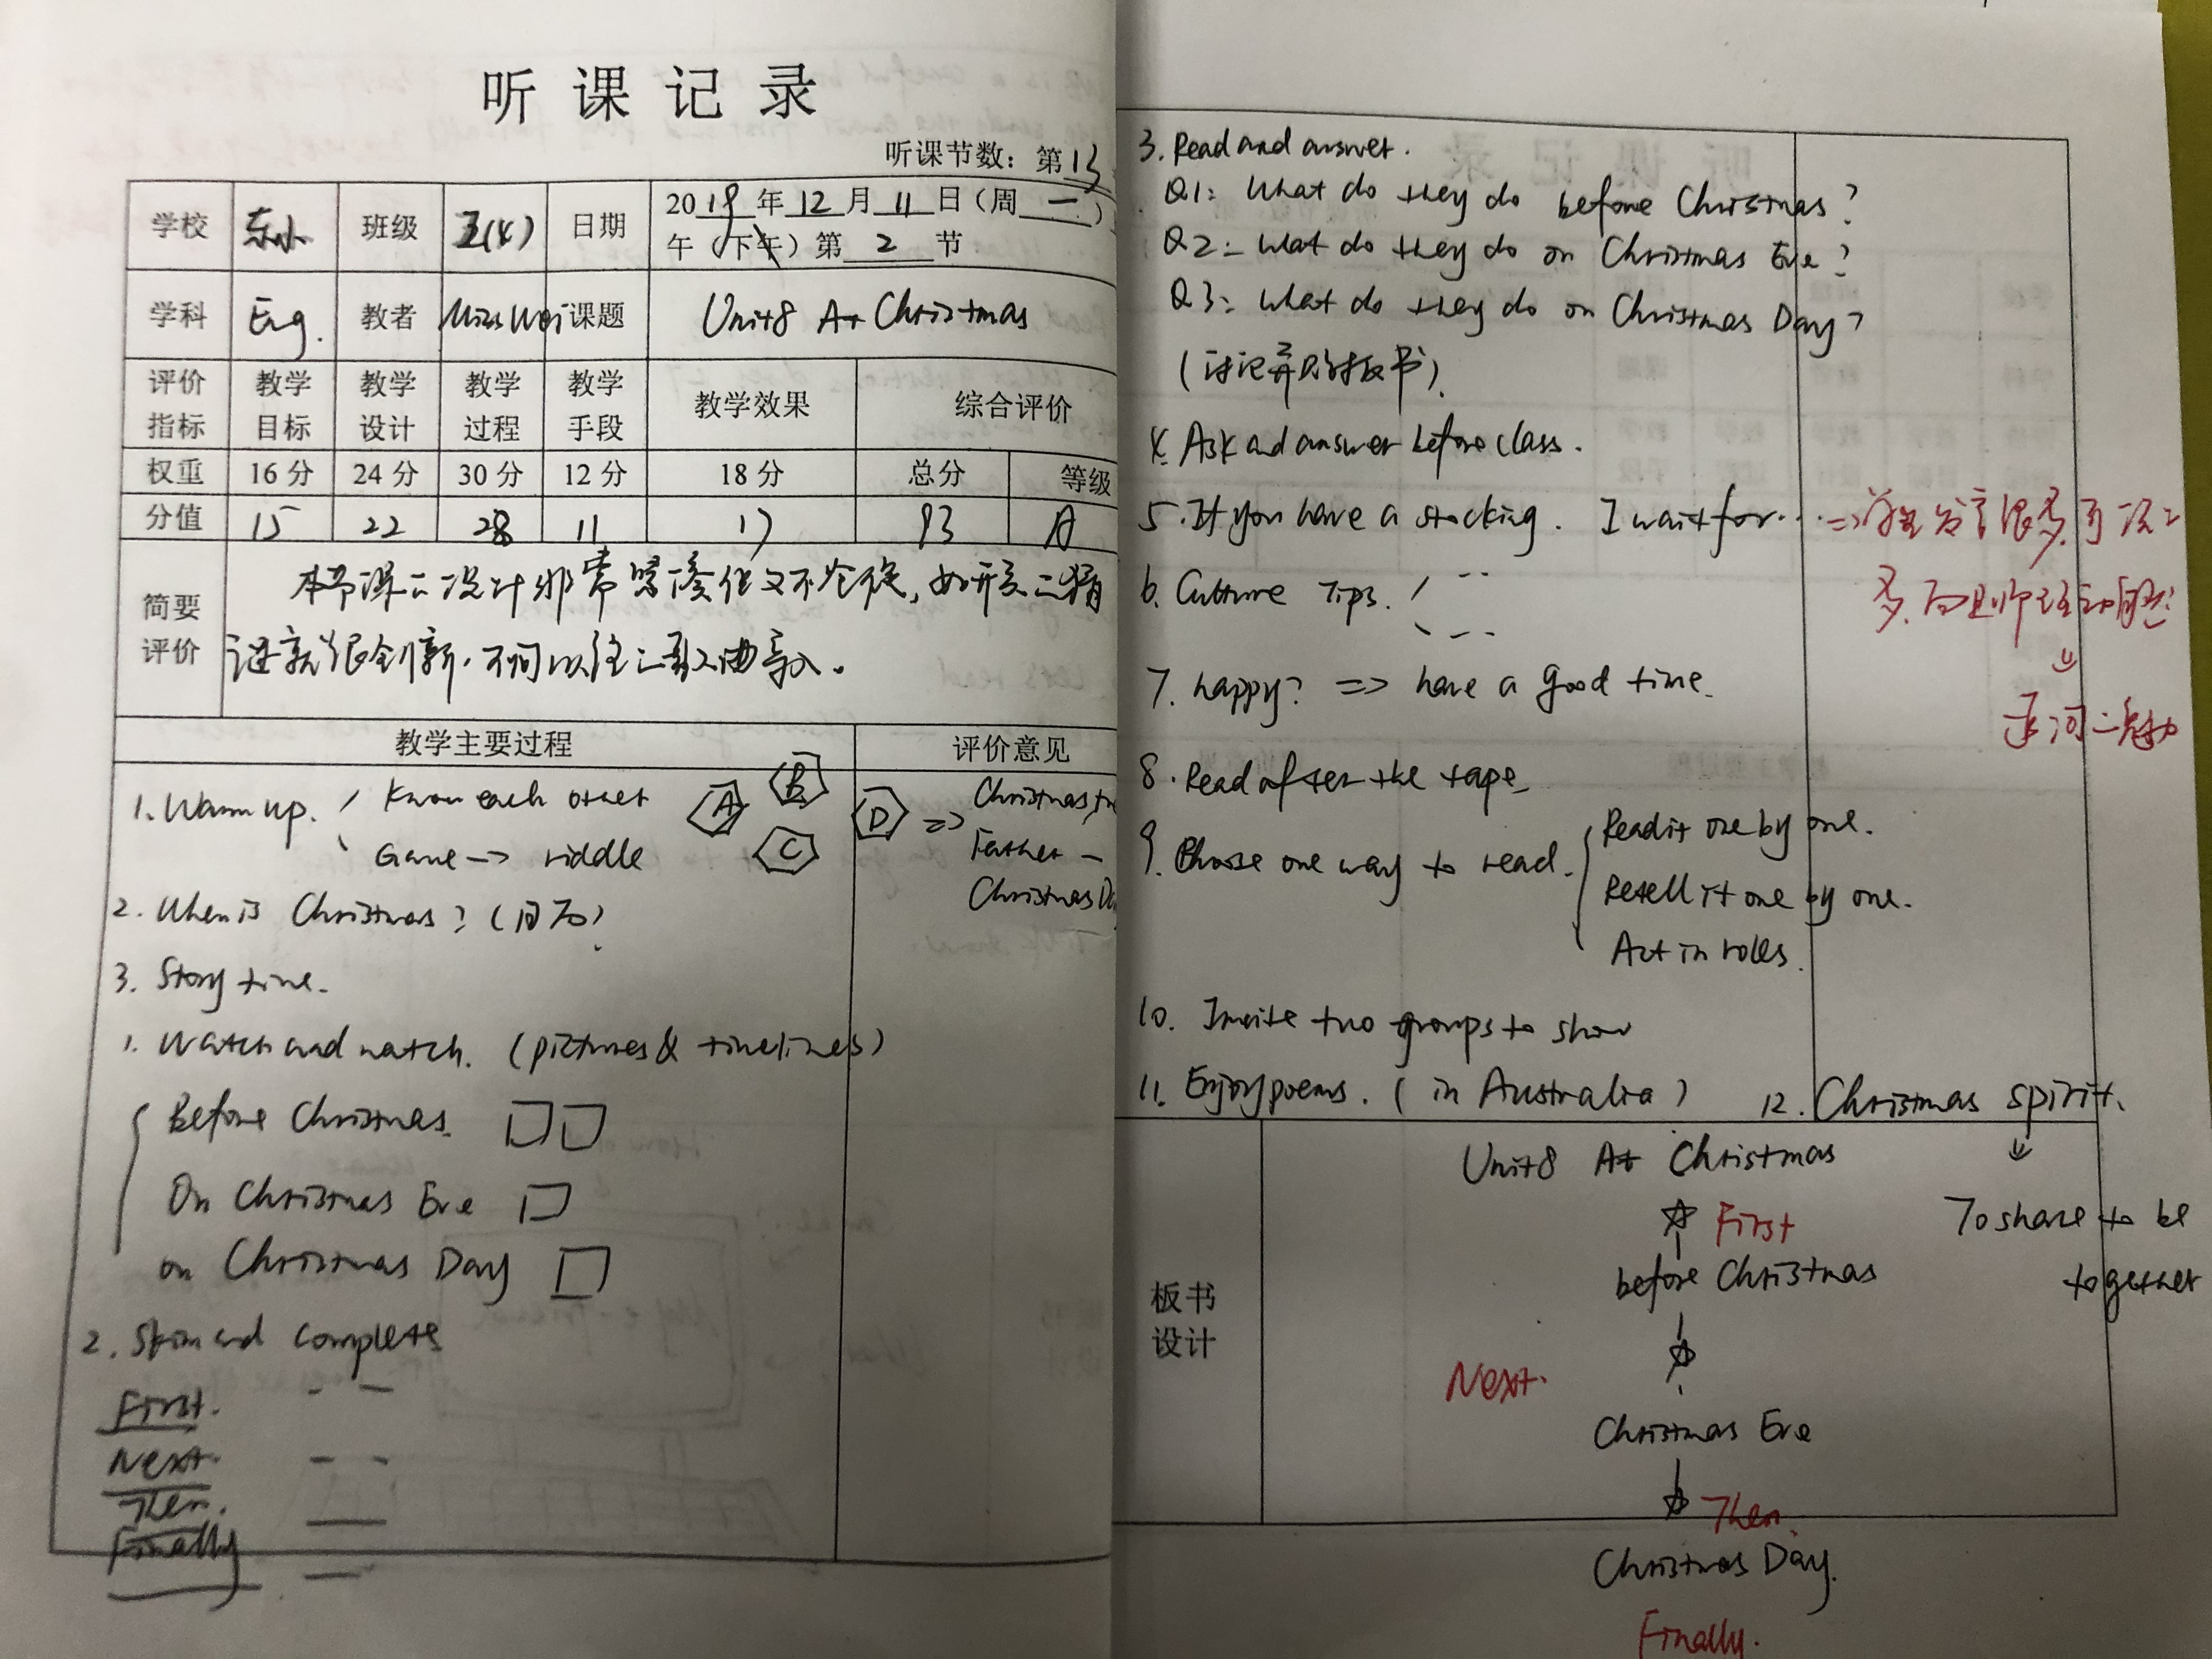 听课记录
听课节数：第13
学校 东小 班级 五(4) 日期 2019年12月11日（周一）
午（下午）第2节
学科 Eng. 教者 Miss Wei 课题 Unit8 At Christmas
评价指标 教学目标 教学设计 教学过程 教学手段 教学效果 综合评价
权重 16分 24分 30分 12分 18分 总分 等级
分值 15 22 28 11 17 93 A
简要评价
本节课的设计非常紧凑但又不仓促，如开头的猜
谜就很创新，不同以往的歌曲导入。
教学主要过程 评价意见
1. Warm up. Know each other
Game -> riddle
A B C D => Christmas tr
Father -
Christmas Da
2. When is Christmas?
3. Story time.
1. Watch and match. (pictures & timelines)
Before Christmas.
On Christmas Eve
on Christmas Day
2. Skim and complete
First.
Next.
Then.
Finally
3. Read and answer.
Q1: What do they do before Christmas?
Q2: What do they do on Christmas Eve?
Q3: What do they do on Christmas Day?
4. Ask and answer before class.
5. If you have a stocking. I wait for... =>
6. Culture Tips.
7. happy? => have a good time.
8. Read after the tape.
9. Choose one way to read.
Read it one by one.
Retell it one by one.
Act in roles.
10. Invite two groups to show
11. Enjoy poems. (in Australia) 12. Christmas spirit.
To share to be
together
板书设计
Unit8 At Christmas
First
before Christmas
Next.
Christmas Eve
Then.
Christmas Day.
Finally.